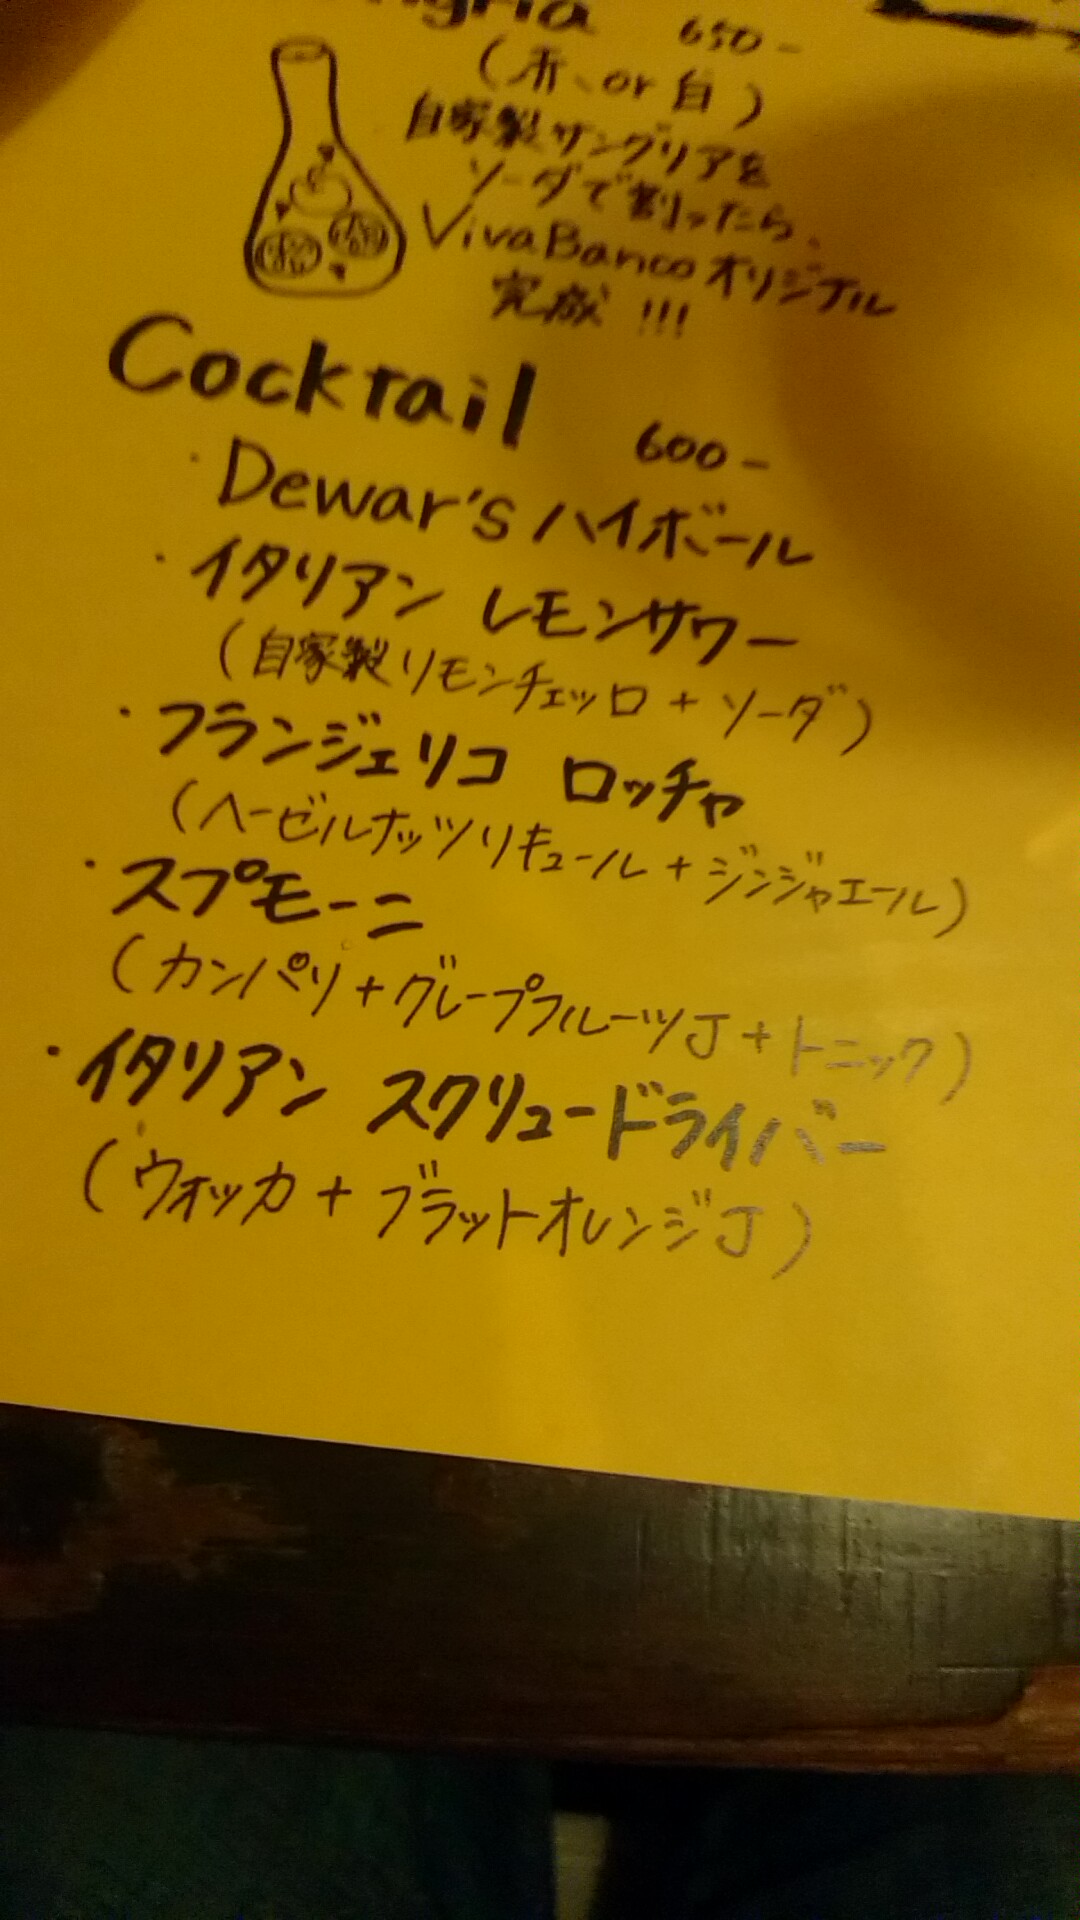 ngria 650-
(赤、or 白)
自家製サングリアを
ソーダで割ったら、
VivaBancoオリジナル
完成 !!!
Cocktail 600-
・Dewar's ハイボール
・イタリアン レモンサワー
(自家製リモンチェッロ + ソーダ)
・フランジェリコ ロッチャ
(ヘーゼルナッツリキュール + ジンジャエール)
・スプモーニ
(カンパリ + グレープフルーツJ + トニック)
・イタリアン スクリュードライバー
(ウォッカ + ブラットオレンジJ)